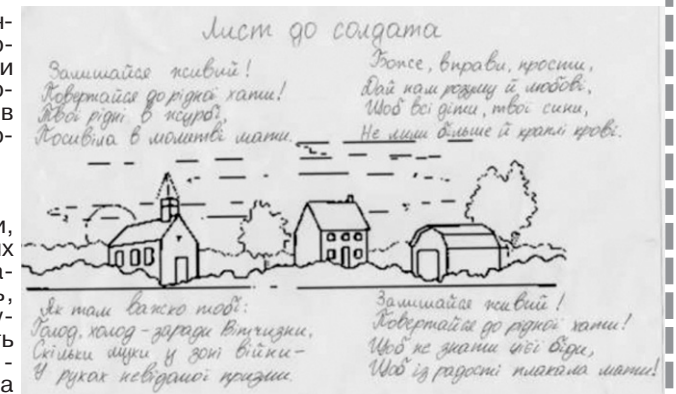 н-
о-
и
о-
в
о-
и,
их
а-
ь,
у-
ть
-
а
Лист до солдата
Залишайся живий!
Повертайся до рідної хати!
Твої рідні в журбі,
Посивіла в молитві мати.
Боже, вправи, прости,
Дай нам розуму й любові,
Щоб всі діти, твої сини,
Не лили більше й краплі крові.
Як там важко тобі:
Голод, холод – заради Вітчизни,
Скільки муки у зоні війни –
У руках невідомої призми.
Залишайся живий!
Повертайся до рідної хати!
Щоб не знати цієї біди,
Щоб із радості плакала мати!